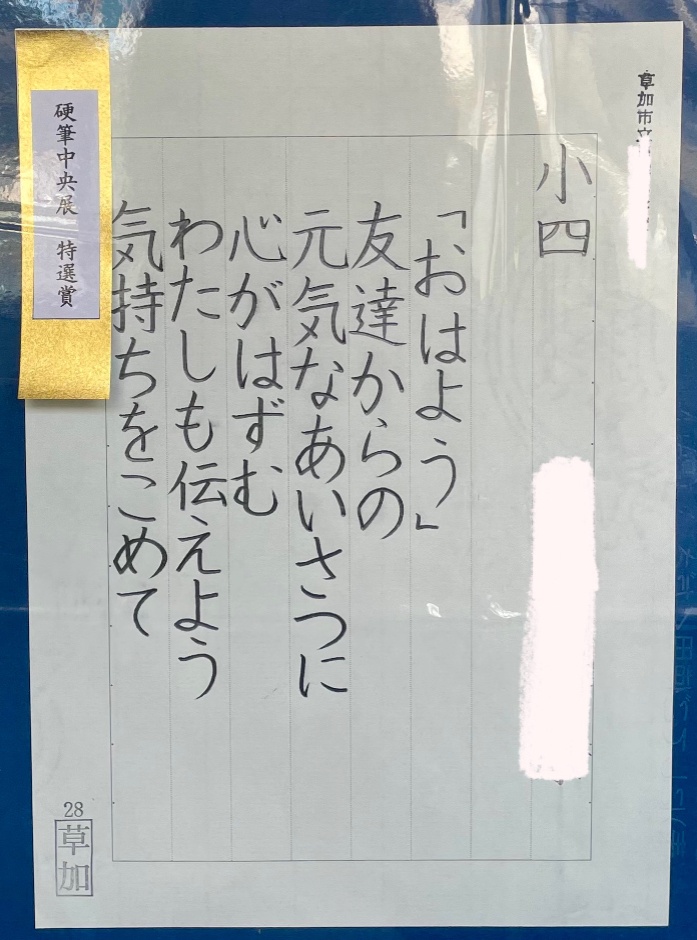 草加市立
小四
「おはよう」
友達からの
元気なあいさつに
心がはずむ
わたしも伝えよう
気持ちをこめて
硬筆中央展 特選賞
28
草加